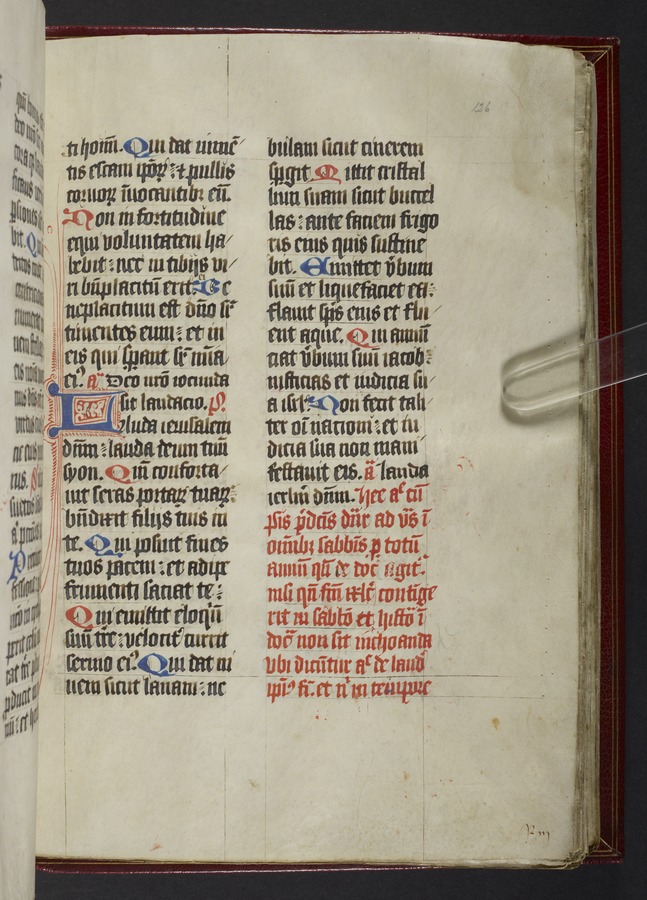 126
ti hoim̄. Qui dat iumē
tis escam ip̄oꝝ: ⁊ pullis
coruoꝝ īuocantibꝫ eū.
Non in fortitudine
equi voluntatem ha
bebit: nec in tibijs vi
ri bn̄placitū erit. Be
neplacitum est dn̄o sr̄
timentes eum: et in
eis qui sꝑant sr̄ mīa
eiꝰ. a᷎ Deo nr̄o iocunda
sit laudacio. p̄s.
Lauda ierusalem
dn̄m: lauda deum tuū
syon. Qm̄ conforta
uit seras portaꝝ tuaꝝ:
bn̄dixit filijs tuis in
te. Qui posuit fines
tuos pacem: et adipe
frumenti saciat te:
Qui emittit eloqū
suū tr̄e: velocit᷑ currit
sermo eiꝰ. Qui dat ni
uem sicut lanam: ne
bulam sicut cinerem
sꝑgit. Mittit cristal
lum suam sicut buccel
las: ante faciem frigo
ris eius quis sustine
bit. Emittet v̄bum
suū et liquefaciet ea:
flauit sp̄s eius et flu
ent aque. Qui annū
ciat v̄bum suū iacob:
iusticias et iudicia su
a isrl̄. Non fecit tali
ter oī nacioni: et iu
dicia sua non mani
festauit eis. a᷎ lauda
ierlm̄ dn̄m. Hec aᵉ cū
ps̄is p̄dc̄is dn̄r ad vs̄ ī
omībꝫ sabbīs ꝑ totū
annū qn̄ de doc̄ agit᷑.
nisi qn̄ fm̄ xlᵉ contige
rit in sabb̄o et histō ī
doc̄ non sit inchoanda
vbi dicūtur aᵉ de laud̄
ip̄iꝰ fr̄. et n̄ in tempore